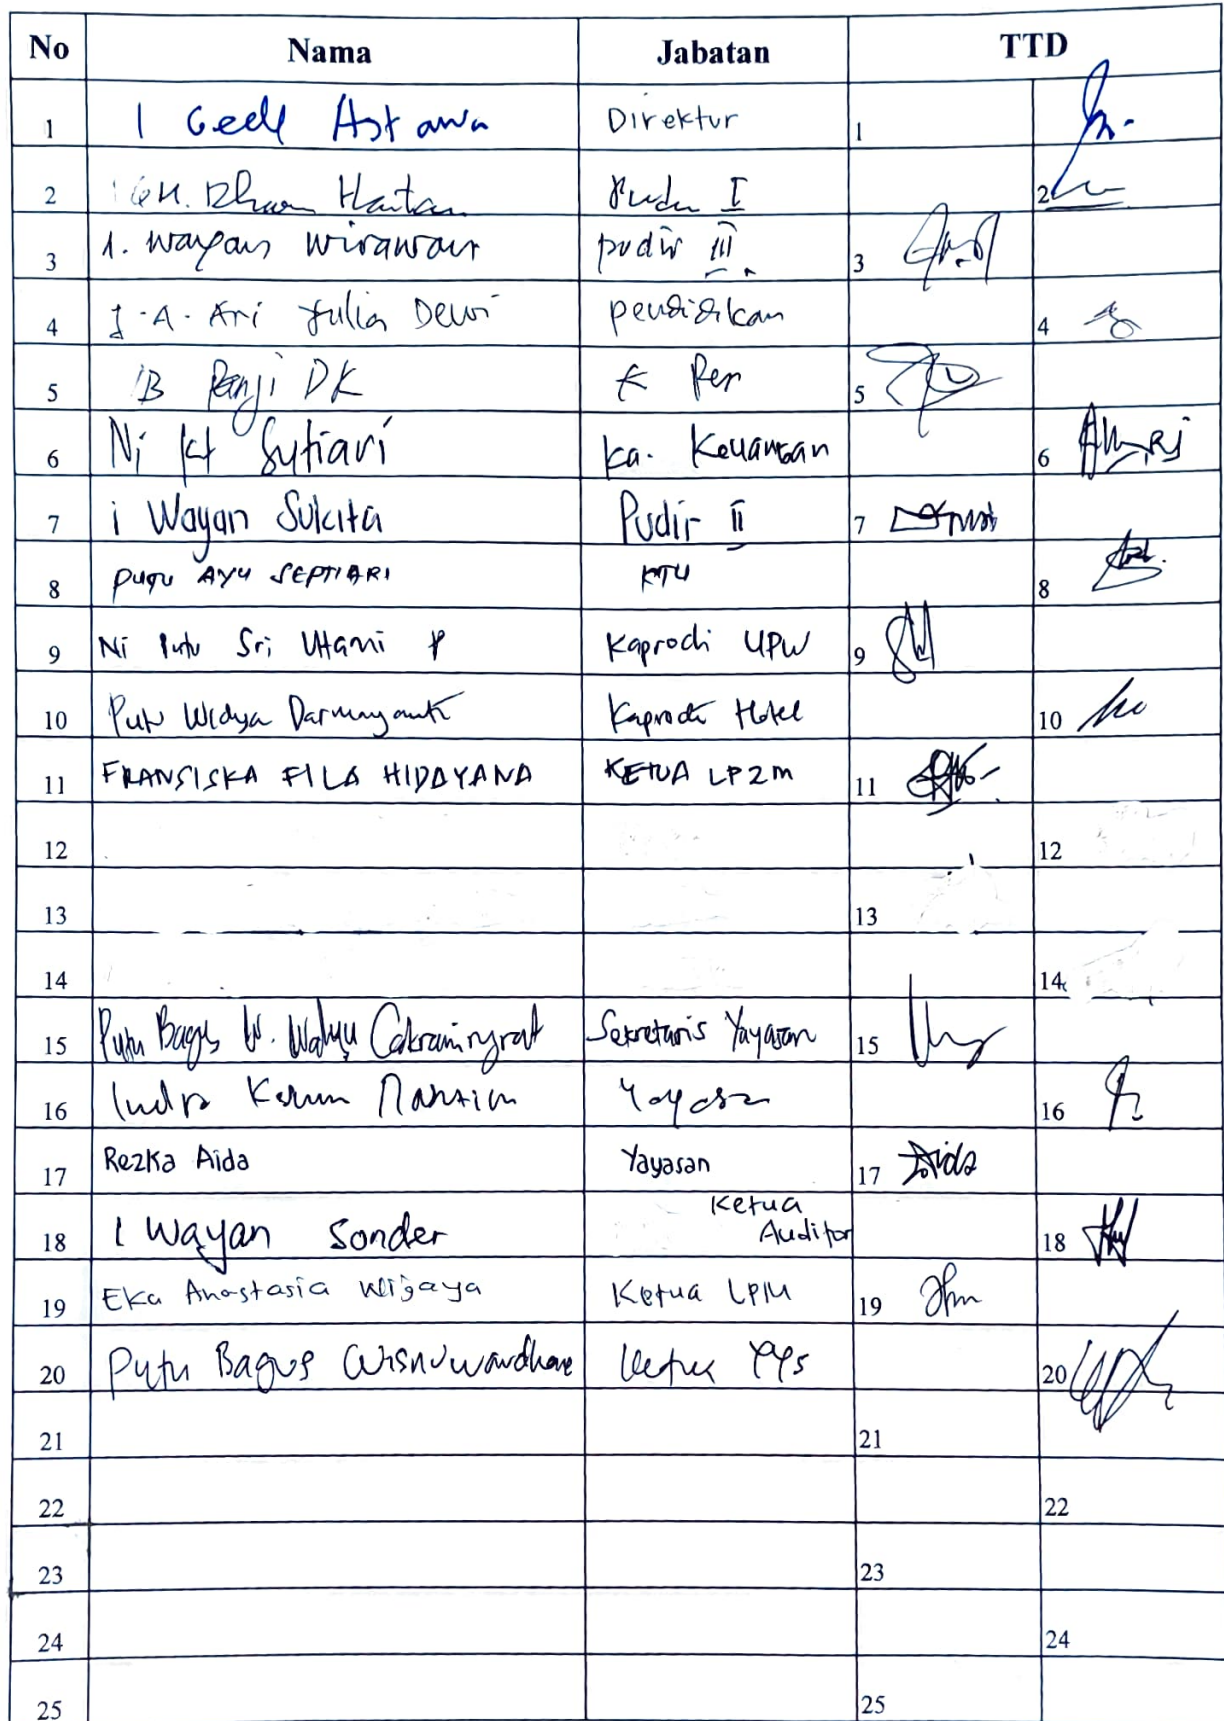 No Nama Jabatan TTD
1 I Gede Astawa Direktur 1
2 Hartan I 2
3 1. Wayan Wirawan pudir III. 3
4 I.A. Ari Yulia Dewi pendidikan 4
5 IB Panji DK 5
6 Ni Kt Sutiari Ka. Keuangan 6
7 i Wayan Sukita Pudir II 7
8 PUTU AYU SEPTIARI KTU 8
9 Ni Putu Sri Utami P Kaprodi UPW 9
10 Putu Widya Darmayanti Kaprodi Hotel 10
11 FRANSISKA FILA HIDAYANA KETUA LP2M 11
12 12
13 13
14 14
15 Putu Bagus W. Wahyu Cakraningrat Sekretaris Yayasan 15
16 Indra Yayasan 16
17 Rezka Aida Yayasan 17 Aida
18 I Wayan Sonder Ketua
Auditor 18
19 Eka Anastasia Wijaya Ketua LPM 19
20 Putu Bagus Wisnuwardhana Ketua YYs 20
21 21
22 22
23 23
24 24
25 25